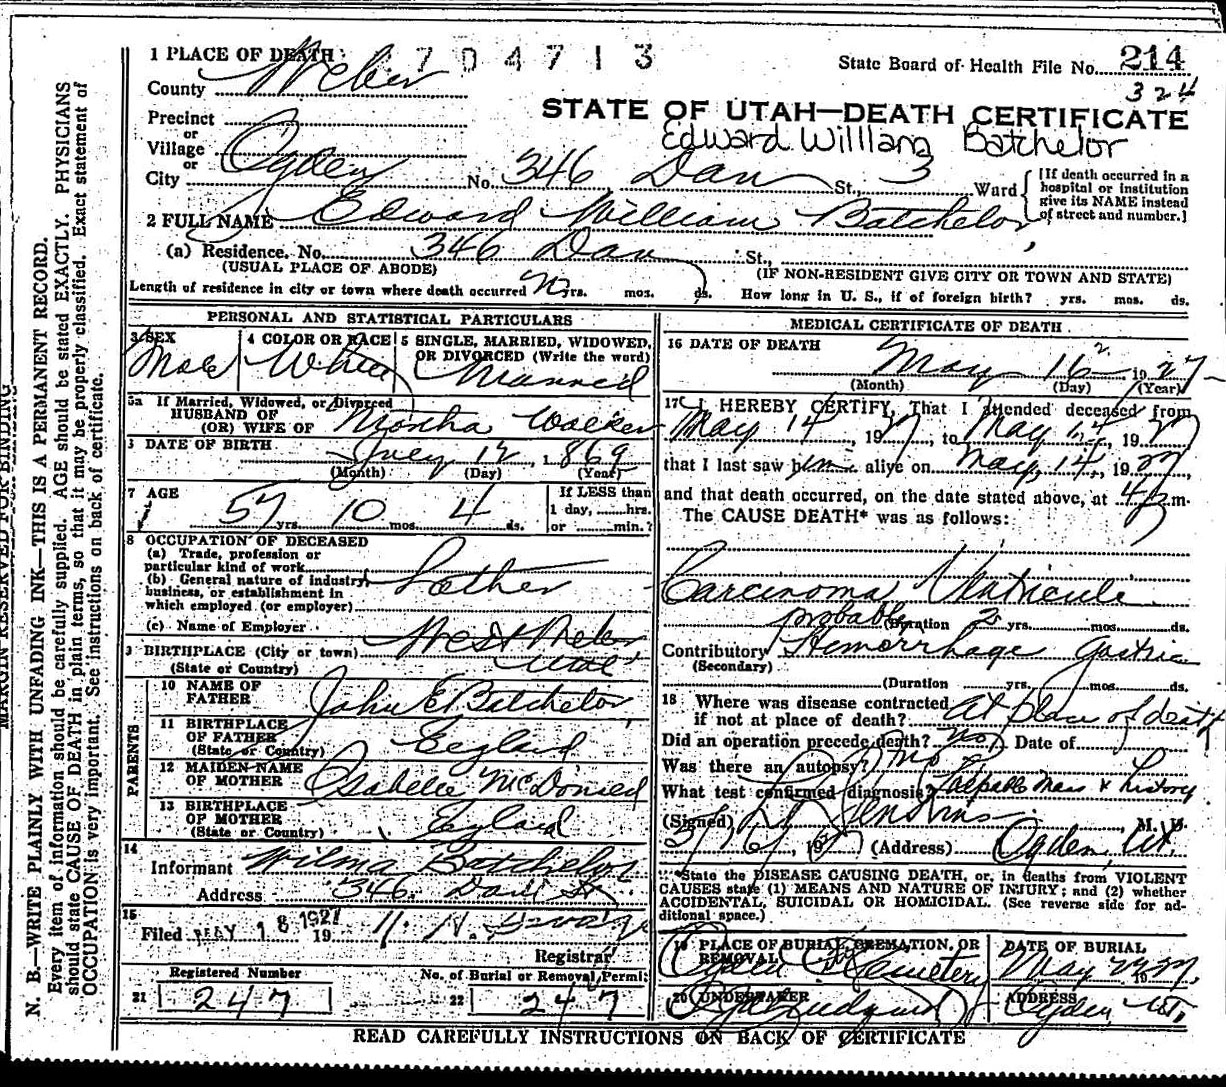 1 PLACE OF DEATH 1704713
State Board of Health File No. 214
324
County Weber
STATE OF UTAH—DEATH CERTIFICATE
Precinct
or
Village
or
City Ogden No. 346 Dan St., 3 Ward
Edward William Batchelor
[If death occurred in a hospital or institution give its NAME instead of street and number.]
2 FULL NAME Edward William Batchelor
(a) Residence. No. 346 Dan St.,
(USUAL PLACE OF ABODE) (IF NON-RESIDENT GIVE CITY OR TOWN AND STATE)
Length of residence in city or town where death occurred yrs. mos. ds. How long in U. S., if of foreign birth? yrs. mos. ds.
PERSONAL AND STATISTICAL PARTICULARS
3 SEX Male
4 COLOR OR RACE White
5 SINGLE, MARRIED, WIDOWED, OR DIVORCED (Write the word) Married
5a If Married, Widowed, or Divorced
HUSBAND OF
(OR) WIFE OF Martha Walker
DATE OF BIRTH July 12, 1869
(Month) (Day) (Year)
7 AGE 57 yrs. 10 mos. 4 ds.
If LESS than
1 day, hrs.
or min.?
8 OCCUPATION OF DECEASED
(a) Trade, profession or
particular kind of work Lather
(b) General nature of industry,
business, or establishment in
which employed (or employer)
(c) Name of Employer
9 BIRTHPLACE (City or town) West Weber
(State or Country) Utah
PARENTS
10 NAME OF
FATHER John E Batchelor
11 BIRTHPLACE
OF FATHER
(State or Country) England
12 MAIDEN NAME
OF MOTHER Isabelle McDonied
13 BIRTHPLACE
OF MOTHER
(State or Country) England
14
Informant Wilma Batchelor
Address 346 Dan St
15
Filed MAY 18 1927 19
Registrar
Registered Number
21 247
No. of Burial or Removal Permit
22 247
MEDICAL CERTIFICATE OF DEATH
16 DATE OF DEATH May 16 1927
(Month) (Day) (Year)
17 I HEREBY CERTIFY, That I attended deceased from
May 14, 1927, to May 14, 1927
that I last saw him alive on May, 14, 1927
and that death occurred, on the date stated above, at m.
The CAUSE DEATH* was as follows:
Carcinoma Ventricule
probably (Duration 2 yrs. mos. ds.
Contributory Hemorrhage Gastric
(Secondary)
(Duration yrs. mos. ds.
18 Where was disease contracted
if not at place of death? At place of death
Did an operation precede death? no Date of
Was there an autopsy? No
What test confirmed diagnosis? Palpable Mass & history
(Signed) Jenkins, M. D.
5/16/, 1927 (Address) Ogden, Ut.
*State the DISEASE CAUSING DEATH, or, in deaths from VIOLENT
CAUSES state (1) MEANS AND NATURE OF INJURY; and (2) whether
ACCIDENTAL, SUICIDAL OR HOMICIDAL. (See reverse side for ad-
ditional space.)
19 PLACE OF BURIAL, CREMATION, OR
REMOVAL Ogden City Cemetery
DATE OF BURIAL
May 1927
20 UNDERTAKER
ADDRESS
Ogden Ut.
READ CAREFULLY INSTRUCTIONS ON BACK OF CERTIFICATE
MARGIN RESERVED FOR BINDING
N. B.—WRITE PLAINLY WITH UNFADING INK—THIS IS A PERMANENT RECORD.
Every item of information should be carefully supplied. AGE should be stated EXACTLY. PHYSICIANS
should state CAUSE OF DEATH in plain terms, so that it may be properly classified. Exact statement of
OCCUPATION is very important. See instructions on back of certificate.